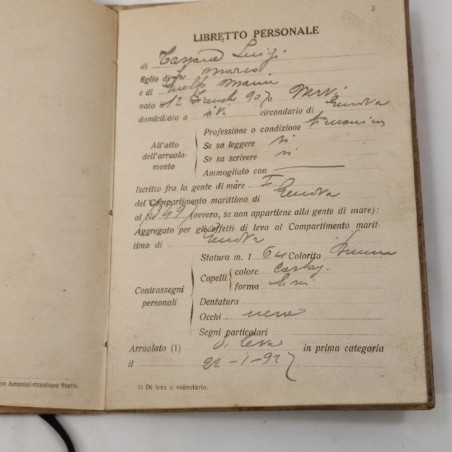 3
LIBRETTO PERSONALE
di Luigi
figlio di fu Marco
e di
nato 12 907 a Nervi
domiciliato a ivi circondario di Genova
Professione o condizione
All'atto dell'arruola-mento
Se sa leggere si
Se sa scrivere si
Ammogliato con
Iscritto fra la gente di mare I Genova
del Compartimento marittimo di
al (ovvero, se non appartiene alla gente di mare):
Aggregato per gli effetti di leva al Compartimento marit-
timo di Genova
Statura m. 1 64 Colorito Bruno
Contrassegni personali
Capelli colore Castag.
forma lisci
Dentatura
Occhi
Segni particolari
Arruolato (1) di leva in prima categoria
il 22-1-927
1) Di leva o volontario.